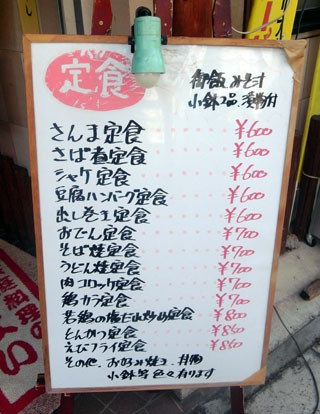 定食
御飯 みそ汁
小鉢2品 漬物付
さんま定食 ¥600
さば煮定食 ¥600
シャケ定食 ¥600
豆腐ハンバーグ定食 ¥600
出し巻玉定食 ¥600
おでん定食 ¥700
そば焼定食 ¥700
うどん焼定食 ¥700
肉コロッケ定食 ¥700
鶏カラ定食 ¥700
若鶏の塩だれ炒め定食 ¥800
とんかつ定食 ¥850
えびフライ定食 ¥850
その他、お好み焼き、丼物
小鉢等色々有ります